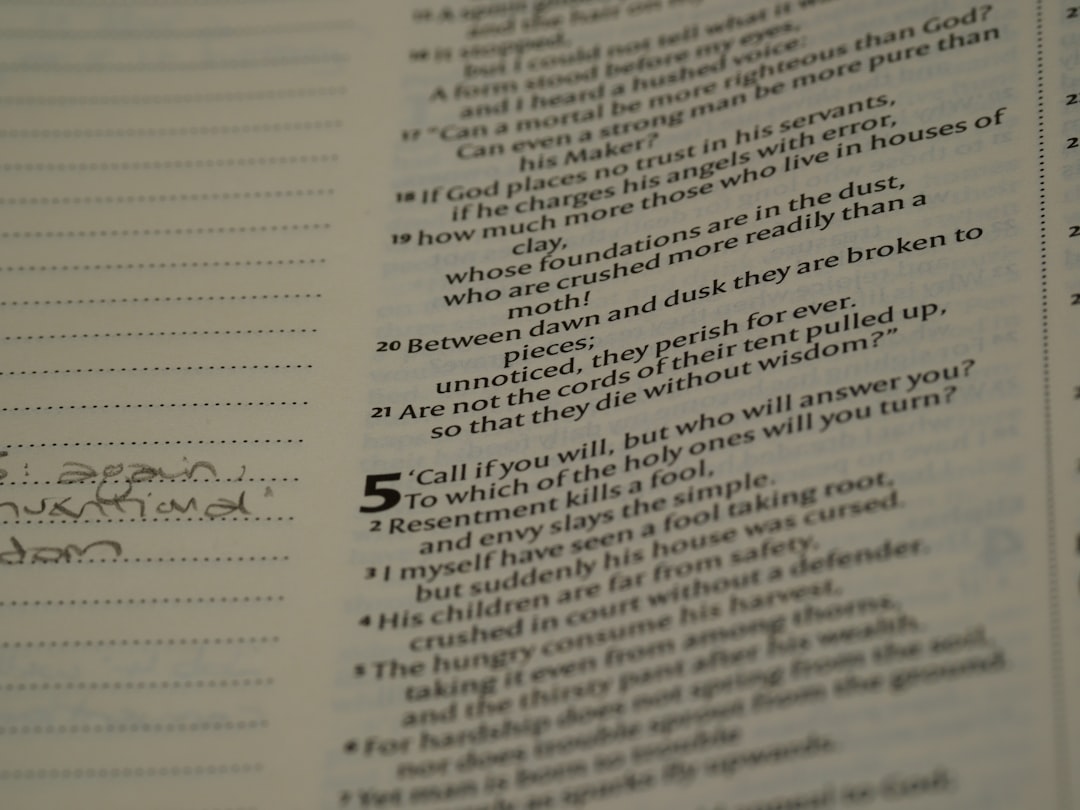 : again,
dom
and the hair on my
is stopped,
but I could not tell what it
A form stood before my eyes,
and I heard a hushed voice:
17 "Can a mortal be more righteous than God?
Can even a strong man be more pure than
his Maker?
18 If God places no trust in his servants,
if he charges his angels with error,
19 how much more those who live in houses of
clay,
whose foundations are in the dust,
who are crushed more readily than a
moth!
20 Between dawn and dusk they are broken to
pieces;
unnoticed, they perish for ever.
21 Are not the cords of their tent pulled up,
so that they die without wisdom?”
5 ‘Call if you will, but who will answer you?
To which of the holy ones will you turn?
2 Resentment kills a fool,
and envy slays the simple.
3 I myself have seen a fool taking root,
but suddenly his house was cursed.
4 His children are far from safety,
crushed in court without a defender.
5 The hungry consume his harvest,
taking it even from among thorns,
and the thirsty pant after his wealth.
6 For hardship does not spring from the soil,
nor does trouble sprout from the ground.
7 Yet man is born to trouble
as sparks fly upwards.